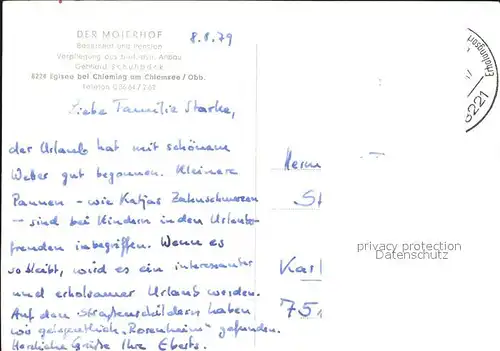 DER MOIERHOF
8.8.79
Bauernhof und Pension
Verpflegung aus Anbau
Gerhard
8224 Egisau bei Chieming am Chiemsee / Obb.
Telefon
Liebe Familie Starke,
der Urlaub hat mit schönem
Wetter gut begonnen. Kleinere
Pannen - wie Katjas Zahnschmerzen
- sind bei Kindern in den Urlaubs-
freuden inbegriffen. Wenn es
so bleibt, wird es ein interessanter
und erholsamer Urlaub werden.
Auf den Straßenschildern haben
wir gelegentlich „Rosenheim" gefunden.
Herzliche Grüße Ihre Eberts.
Herrn
St
Karl
75
Erholungsort
8221
privacy protection
Datenschutz